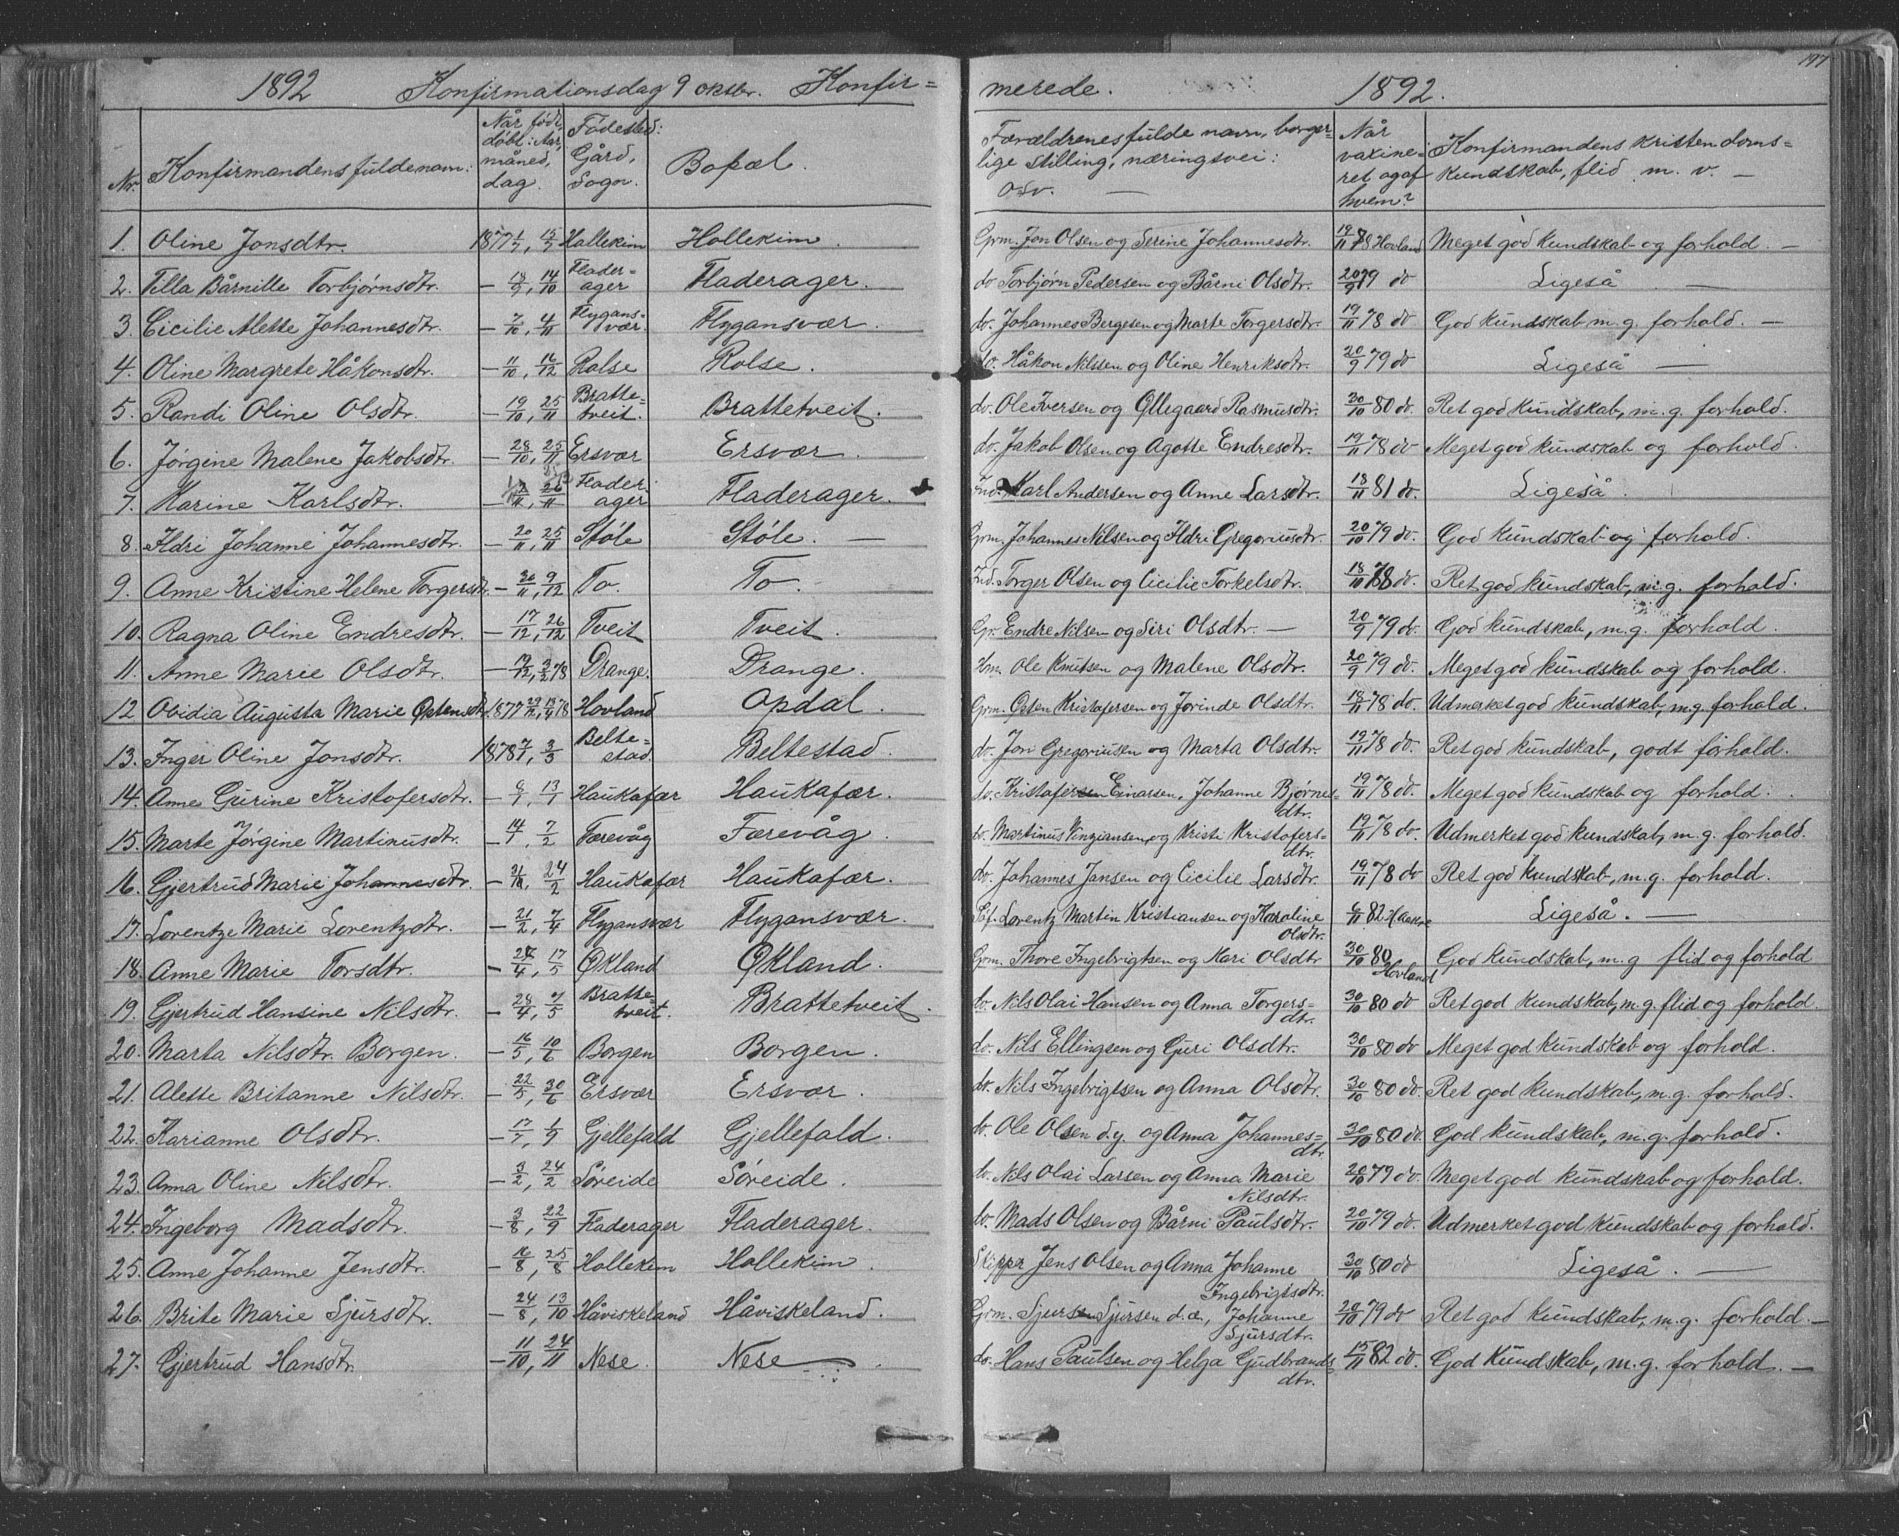 1892 Konfirmationsdag 9 oktbr. Konfir= merede. 1892. 197
Nr. Konfirmandens fulde navn: Når født, døbt: Aar, måned, dag. Fødested: Gård, Sogn. Bopæl. Forældrenes fulde navn, borgerlige Stilling, næringsvei: osv. — Når vaxineret og af hvem? Konfirmandens kristendomskundskab, flid m. v. —
1. Oline Jonsdtr. 1877 1/7, 15/7 Hollekim Hollekim. Grm. Jon Olsen og Serine Johannesdtr. 19/11 78 Hovland Meget god kundskab og forhold. —
2. Tilla Bårnille Torbjørnsdtr. — 18/9, 14/10 Fladerager Fladerager. do Torbjørn Pedersen og Bårni Olsdtr. 20/9 79 do Ligeså. —
3. Cicilie Alette Johannesdtr. — 7/10, 4/11 Flygansvær. Flygansvær. do. Johannes Bergesen og Marte Torgersdtr. 19/11 78 do God kundskab, m. g. forhold. —
4. Oline Margrete Håkonsdtr. — 11/10, 16/12 Rolse Rolse. do. Håkon Nilssen og Oline Henriksdtr. 20/9 79 do Ligeså —
5. Randi Oline Olsdtr. — 19/10, 25/11 Brattetveit. Brattetveit. do. Ole Iversen og Ollegaard Rasmusdtr. 30/10 80 do. Ret god kundskab, m. g. forhold.
6. Jørgine Malene Jakobsdtr. — 28/10, 25/11 Ersvær Ersvær. do. Jakob Olsen og Agotte Endresdtr. 19/11 78 do Meget god kundskab og forhold.
7. Karine Karlsdtr. — /11, /11 Fladerager Fladerager. Ind. Karl Andersen og Anne Larsdtr. 18/11 81 do. Ligeså.
8. Ildri Johanne Johannesdtr. — 20/11, 25/11 Støle Støle. — Grm. Johannes Nilsen og Ildri Gregoriusdtr. 20/10 79 do. God kundskab og forhold.
9. Anne Kristine Helene Torgersdtr. — 30/11, 9/12 To. To. Ind. Torger Olsen og Cicilie Torkelsdtr. 18/10 78 do. Ret god kundskab, m. g. forhold.
10. Ragna Oline Endresdtr. — 17/12, 26/12 Tveit Tveit. Gr. Endre Nilsen og Siri Olsdtr. — 20/9 79 do. God kundskab, m. g. forhold
11. Anne Marie Olsdtr. — 19/12, 3/2 78 Drange. Drange. Hm. Ole Knutsen og Malene Olsdtr. 20/9 79 do. Meget god kundskab og forhold.
12 Obidia Augusta Marie Østensdtr. 1877 29/12, 19/4 78 Hovland Opdal. Grm. Østen Kristofersen og Jorinde Olsdtr. 18/11 78 do. Udmerket god kundskab, m. g. forhold.
13. Inger Oline Jonsdtr. 1878 7/1, 3/3 Beltestad. Beltestad. do. Jon Gregoriusen og Marta Olsdtr. 19/11 78 do. Ret god kundskab, godt forhold.
14. Anne Gurine Kristofersdtr. — 6/1, 13/1 Haukafær Haukafær. do. Kristofersen Einarsen, Johanne Bjørnesdtr. 19/11 78 do. Meget god kundskab og forhold.
15. Marte Jørgine Martinusdtr. — 14/1, 7/2 Færevåg Færevåg. do. Martinus Vinziansen og Kristi Kristofersdtr. 19/11 78 do. Udmerket god kundskab, m. g. forhold.
16. Gjertrud Marie Johannesdtr. — 21/1, 24/2 Haukafær Haukafær. do. Johannes Jansen og Cicilie Larsdtr. 19/11 78 do Ret god kundskab, m. g. forhold.
17. Lorentze Marie Lorentzdtr. — 21/2, 7/4 Flygansvær Flygansvær. Lorentz Martin Kristiansen og Karoline Olsdtr. 6/11 82 Ligeså. —
18. Anne Marie Torsdtr. — 24/4, 17/5 Økland Økland. Grm. Thore Ingebrigtsen og Kari Olsdtr 30/10 80 Hovland God kundskab, m. g flid og forhold
19. Gjertrud Hansine Nilsdtr. — 24/4, 7/5 Brattetveit. Brattetveit. do. Nils Olai Hansen og Anna Torgersdtr. 30/10 80 do Ret god kundskab, m. g. flid og forhold.
20. Marta Nilsdtr. Borgen. — 16/5, 10/6 Borgen Borgen. do. Nils Ellingsen og Guri Olsdtr. 30/10 80 do Meget god kundskab og forhold.
21. Alette Britanne Nilsdtr. — 22/5, 30/6 Ersvær Ersvær. do. Nils Ingebrigtsen og Anna Olsdtr. 30/10 80 do. Ret god kundskab, m. g. forhold.
22. Karianne Olsdtr. — 17/7, 1/9 Gjellefald Gjellefald. do. Ole Olsen d. y. og Anna Johannesdtr. 30/10 80 do. God kundskab, m. g. forhold.
23. Anna Oline Nilsdtr. — 3/2, 24/2 Søreide Søreide. do. Nils Olai Larsen og Anna Marie Nilsdtr. 20/10 79 do. Meget god kundskab og forhold.
24. Ingeborg Madsdtr. — 3/8, 22/9 Fladerager Fladerager. do. Mads Olsen og Bårni Paulsdtr. 20/10 79 do. Udmerket god kundskab og forhold.
25. Anne Johanne Jensdtr. — 16/8, 25/8 Hollekim Hollekim. Skipper Jens Olsen og Anna Johanne Ingebrigtsdtr. 30/10 80 do Ligeså. —
26. Brite Marie Sjursdtr. — 24/8, 13/10 Håviskeland Håviskeland. Grm. Sjursen Sjursen d. æ., Johanne Sjursdtr. 20/10 79 do Ret god kundskab, m. g. forhold. —
27. Gjertrud Hansdtr. — 11/10, 24/11 Nese. Nese do. Hans Paulsen og Helga Gudbrandsdtr. 15/11 82 do. God kundskab, m. g. forhold. —